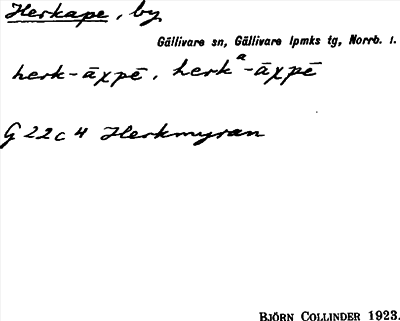 Herkape, by
Gällivare sn, Gällivare lpmks tg, Norrb. l.
herk-āχpē, herkᵃ-āχpē
G 22 c 4 Herkmyran
BJÖRN COLLINDER 1923.